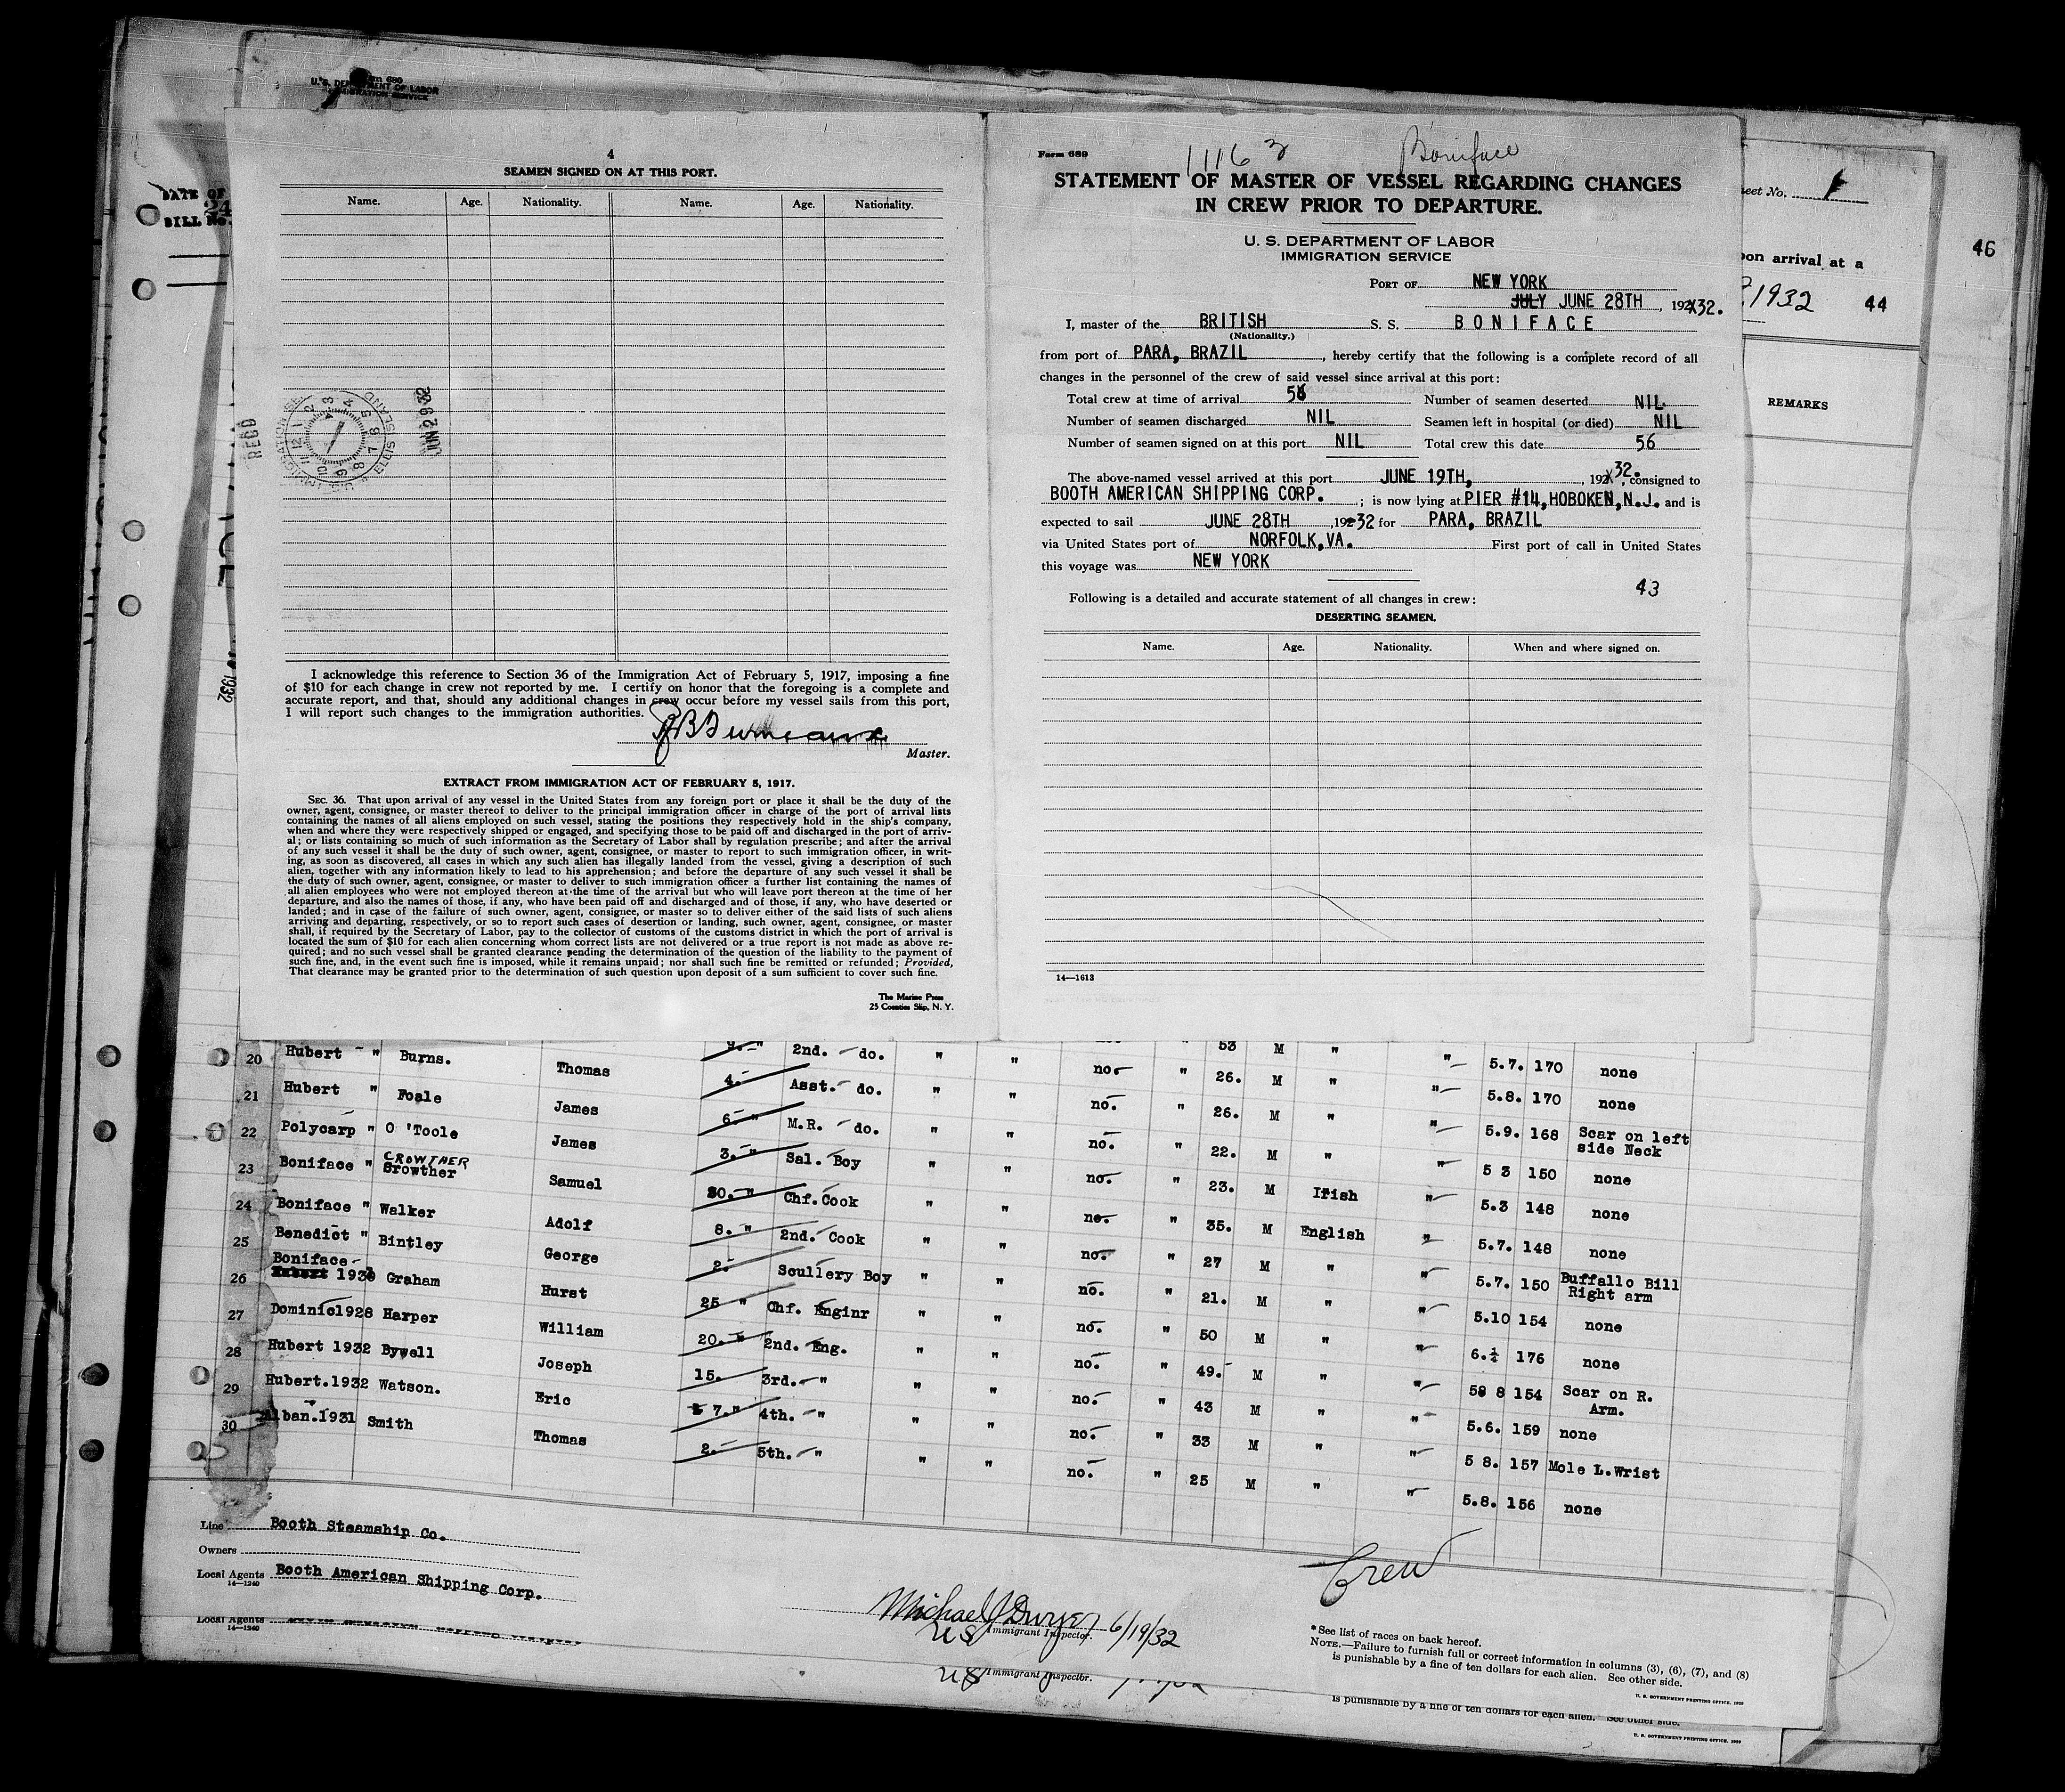 Form 689
U. S. DEPARTMENT OF LABOR
IMMIGRATION SERVICE
DATE OF
BILL No.
4
SEAMEN SIGNED ON AT THIS PORT.
Name. Age. Nationality. Name. Age. Nationality.
REC'D
U.S. IMMIGRATION SE. ELLIS ISLAND
JUN 29 32
I acknowledge this reference to Section 36 of the Immigration Act of February 5, 1917, imposing a fine
of $10 for each change in crew not reported by me. I certify on honor that the foregoing is a complete and
accurate report, and that, should any additional changes in crew occur before my vessel sails from this port,
I will report such changes to the immigration authorities.
Master.
EXTRACT FROM IMMIGRATION ACT OF FEBRUARY 5, 1917.
SEC. 36. That upon arrival of any vessel in the United States from any foreign port or place it shall be the duty of the
owner, agent, consignee, or master thereof to deliver to the principal immigration officer in charge of the port of arrival lists
containing the names of all aliens employed on such vessel, stating the positions they respectively hold in the ship's company,
when and where they were respectively shipped or engaged, and specifying those to be paid off and discharged in the port of arriv-
al; or lists containing so much of such information as the Secretary of Labor shall by regulation prescribe; and after the arrival
of any such vessel it shall be the duty of such owner, agent, consignee, or master to report to such immigration officer, in writ-
ing, as soon as discovered, all cases in which any such alien has illegally landed from the vessel, giving a description of such
alien, together with any information likely to lead to his apprehension; and before the departure of any such vessel it shall be
the duty of such owner, agent, consignee, or master to deliver to such immigration officer a further list containing the names of
all alien employees who were not employed thereon at the time of the arrival but who will leave port thereon at the time of her
departure, and also the names of those, if any, who have been paid off and discharged and of those, if any, who have deserted or
landed; and in case of the failure of such owner, agent, consignee, or master so to deliver either of the said lists of such aliens
arriving and departing, respectively, or so to report such cases of desertion or landing, such owner, agent, consignee, or master
shall, if required by the Secretary of Labor, pay to the collector of customs of the customs district in which the port of arrival is
located the sum of $10 for each alien concerning whom correct lists are not delivered or a true report is not made as above re-
quired; and no such vessel shall be granted clearance pending the determination of the question of the liability to the payment of
such fine, and, in the event such fine is imposed, while it remains unpaid; nor shall such fine be remitted or refunded; Provided,
That clearance may be granted prior to the determination of such question upon deposit of a sum sufficient to cover such fine.
The Marine Press
25 Coenties Slip, N. Y.
Form 689
1116 3 Boniface
STATEMENT OF MASTER OF VESSEL REGARDING CHANGES
IN CREW PRIOR TO DEPARTURE.
U. S. DEPARTMENT OF LABOR
IMMIGRATION SERVICE
PORT OF NEW YORK
JULY JUNE 28TH, 1932.
I, master of the BRITISH S. S. BONIFACE
(Nationality.)
from port of PARA, BRAZIL, hereby certify that the following is a complete record of all
changes in the personnel of the crew of said vessel since arrival at this port:
Total crew at time of arrival 56 Number of seamen deserted NIL.
Number of seamen discharged NIL Seamen left in hospital (or died) NIL
Number of seamen signed on at this port NIL Total crew this date 56
The above-named vessel arrived at this port JUNE 19TH, 1932. consigned to
BOOTH AMERICAN SHIPPING CORP. ; is now lying at PIER #14, HOBOKEN, N.J. and is
expected to sail JUNE 28TH, 1932 for PARA, BRAZIL
via United States port of NORFOLK, VA. First port of call in United States
this voyage was NEW YORK
43
Following is a detailed and accurate statement of all changes in crew:
DESERTING SEAMEN.
Name. Age. Nationality. When and where signed on.
14—1613
eet No. 1
46
on arrival at a
1932 44
REMARKS
20 Hubert " Burns. Thomas 9. " 2nd. do. " " no " 53 M " " 5.7. 170 none
21 Hubert " Foale James 4. Asst. do. " " no. " 26. M " " 5.8. 170 none
22 Polycarp " O'Toole James 6. " M.R. do. " " no. " 26. M " " 5.9. 168 Scar on left side Neck
23 Boniface " CROWTHER Srowther Samuel 3. " Sal. Boy " " no. " 22. M " " 5 3 150 none
24 Boniface " Walker Adolf 30. " Chf. Cook " " no. " 23. M Irish " 5.3 148 none
25 Benedict " Bintley George 8. " 2nd. Cook " " no. " 35. M English " 5.7. 148 none
26 Boniface Hubert 193 Graham Hurst 2. Scullery Boy " " no. " 27 M " " 5.7. 150 Buffallo Bill Right arm
27 Dominic1928 Harper William 25 " Chf. Enginr " " no. " 21. M " " 5.10 154 none
28 Hubert 1932 Bywell Joseph 20. " 2nd. Eng. " " no. " 50 M " " 6.¼ 176 none
29 Hubert.1932 Watson. Eric 15. 3rd. " " " no. " 49. M " " 5 8 154 Scar on R. Arm.
30 Alban.1931 Smith Thomas 7. " 4th. " " " no. " 43 M " " 5.6. 159 none
2. 5th. " " " no. " 33 M " " 5 8. 157 Mole L.Wrist
no. " 25 M " " 5.8. 156 none
Line Booth Steamship Co.
Owners
Local Agents Booth American Shipping Corp.
14—1240
Crew
Michael J Dwyer 6/19/32
US Immigrant Inspector.
*See list of races on back hereof.
NOTE.—Failure to furnish full or correct information in columns (3), (6), (7), and (8)
is punishable by a fine of ten dollars for each alien. See other side.
U. S. GOVERNMENT PRINTING OFFICE. 1929
Local Agents
14—1240
US Immigrant Inspector.
is punishable by a fine of ten dollars for each alien. See other side.
U. S. GOVERNMENT PRINTING OFFICE. 1929